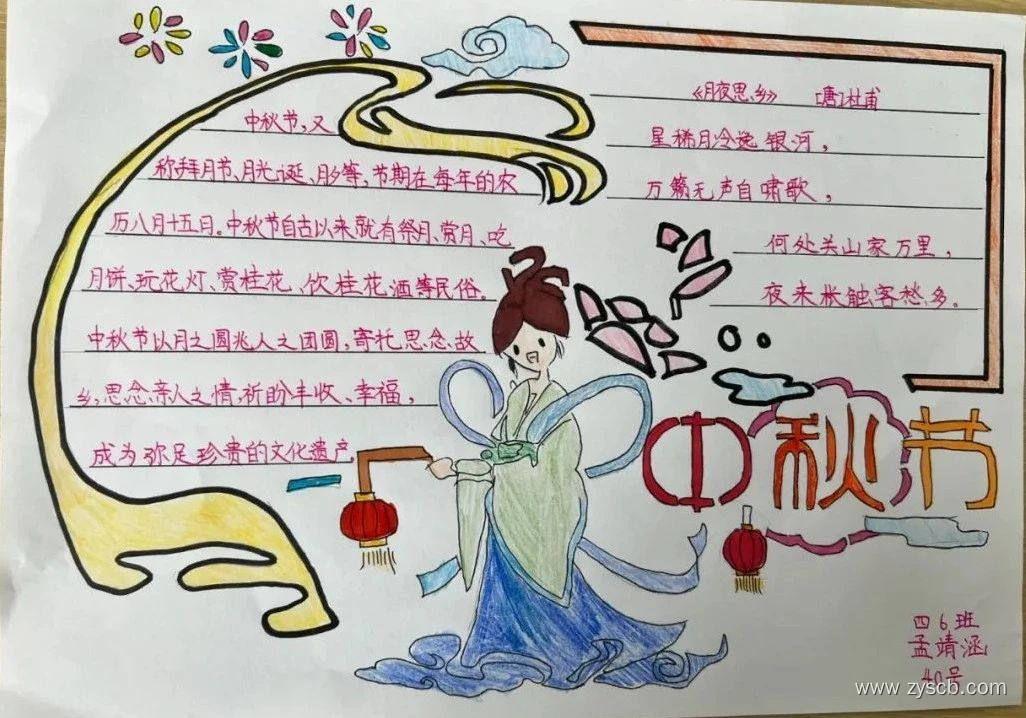 中秋节,又
称拜月节、月光诞、月夕等,节期在每年的农
历八月十五日。中秋节自古以来就有祭月、赏月、吃
月饼、玩花灯、赏桂花、饮桂花酒等民俗。
中秋节以月之圆兆人之团圆,寄托思念故
乡,思念亲人之情,祈盼丰收、幸福,
成为弥足珍贵的文化遗产。
《月夜思乡》 [唐]杜甫
星稀月冷逸银河,
万籁无声自啸歌,
何处关山家万里,
夜来枨触客愁多。
中秋节
四6班
孟靖涵
40号
www.zyscb.com